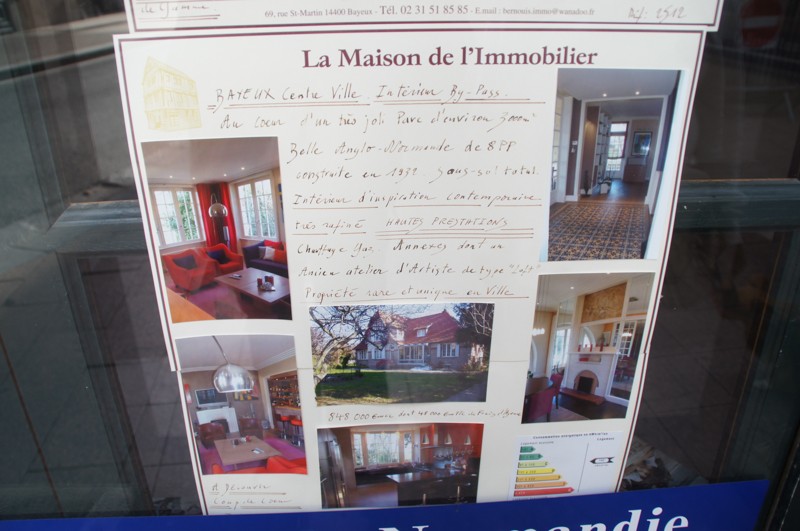 69, rue St-Martin 14400 Bayeux - Tél. 02 31 51 85 85 - E.mail : bernouis.immo@wanadoo.fr
Réf: 2512
La Maison de l'Immobilier
BAYEUX Centre Ville Intérieur By-Pass.
Au Coeur d'un très joli Parc d'environ 3000m²
Belle Anglo-Normande de 8 PP
construite en 1932 Sous-sol total.
Intérieur d'inspiration contemporaine
très rafiné HAUTES PRESTATIONS
Chauffage Gaz. Annexes dont un
Ancien atelier d'Artiste de type "Loft"
Propriété rare et unique en Ville
848 000 Euros dont
Consommation énergétique
Logement
Normandie